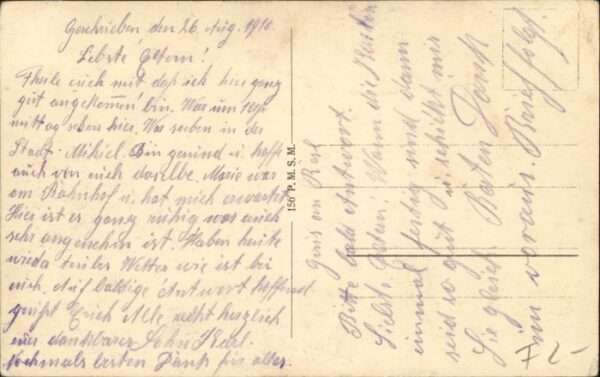 Geschrieben den 26 Aug. 1916.
Liebste Eltern!
Theile euch mit daß ich hier ganz
gut angekommen bin. War um 1 Uhr
mittag schon hier. War soeben in der
Stadt Mihiel. Bin gesund u. hoffe
auch von euch dasselbe. Marie war
am Bahnhof u. hat mich erwartet.
Hier ist es ganz ruhig was auch
sehr angenehm ist. Haben heute
wieder Wetter wie ist bei
euch. Auf baldige Antwort hoffend
grüßt Euch Alle recht herzlich
euer dankbarer Sohn Karl.
nochmals besten Dank für alles.
150 P. M. S. M.
Gruß an
Bitte bald Antwort.
Liebste Wann die
einmal fertig sind dann
seid so gut u. schickt mir
Sie gleich. Besten Dank
im voraus. Brief folgt.
F 2-